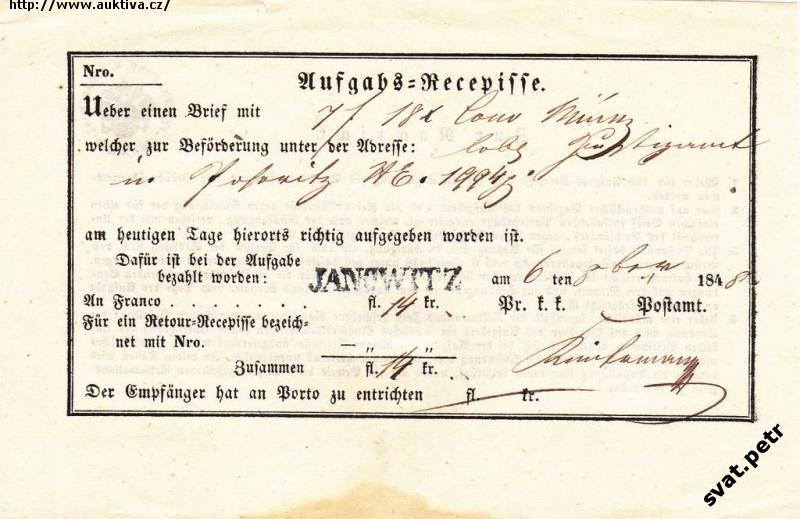 http://www.auktiva.cz/
Nro.
Aufgabs-Recepisse.
Ueber einen Brief mit 7 f 18 x Conv Münz
welcher zur Beförderung unter der Adresse: löbl
am heutigen Tage hierorts richtig aufgegeben worden ist.
Dafür ist bei der Aufgabe
bezahlt worden: JANOWITZ am 6 ten 8ber 1848
An Franco . . . . . . . fl. 14 kr. Pr. k. k. Postamt.
Für ein Retour-Recepisse bezeich-
net mit Nro. — „ — „ —
Zusammen fl. 14 kr.
Der Empfänger hat an Porto zu entrichten fl. kr.
svat.petr